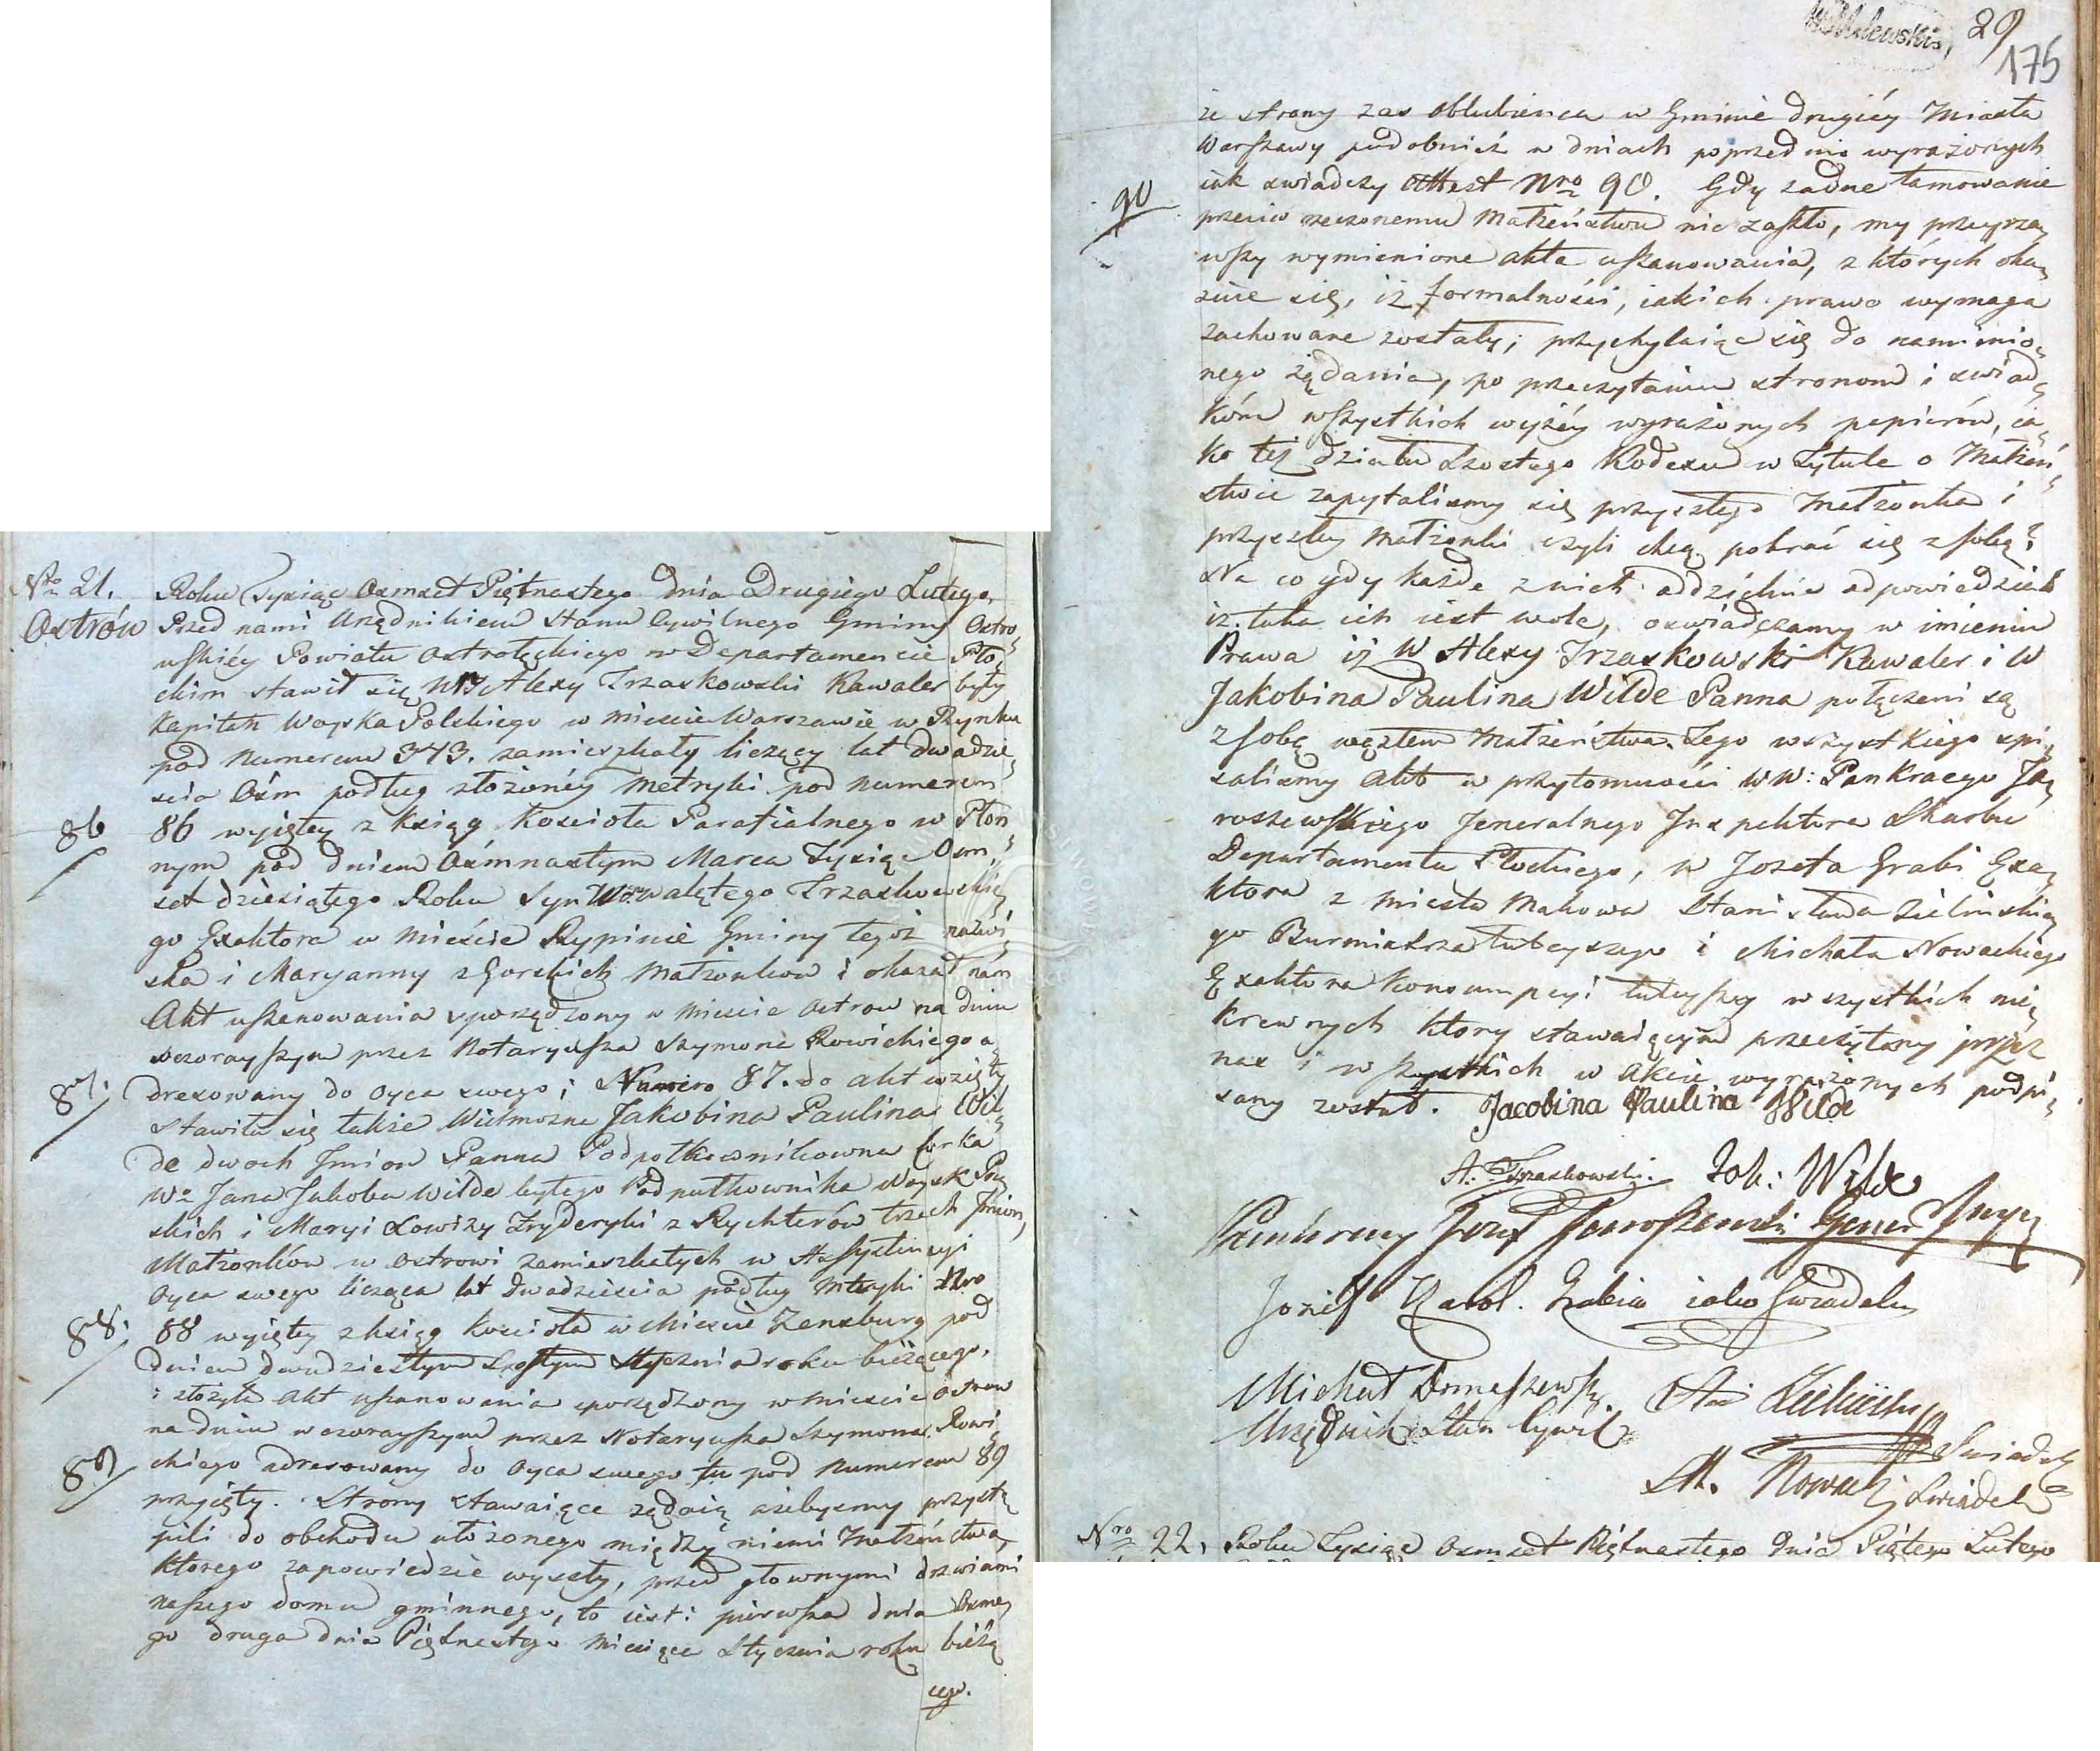 Nro 21. Roku Tysiąc Osmset Piętnastego dnia Drugiego Lutego.
Ostrów Przed nami Urzędnikiem Stanu Cywilnego Gminy Ostro„
wskiéy Powiatu Ostrołęckiego w Departamencie Pło„
ckim stawił się W Alexy Trzaskowski Kawaler były
Kapitan Woyska Polskiego w mieście Warszawie w Rynku
pod Numerem 343. zamieszkały liczący lat dwadzie„
scia Ośm podług złożonéy metryki pod numerem
86 86 wyiętey z Xiąg Kościoła Parafialnego w Płon„
nym pod dniem Ośmnastym Marca Tysiąc Osm„
set dziesiątego Roku Syn Walętego Trzaskowskie„
go Exaktora w mieście Rypinie Gminy tegoż nazwi„
ska i Maryanny z Gorskich małżonkow i okazał nám
Akt uszanowania sporządzony w mieście Ostrow na dniu
wczorayszym przez Notaryusza Szymona Rowickiego a„
87. drexowany do oyca swego i Numero 87. do akt wzięty
stawiła się także Wielmożna Jakobina Paulina Wil„
de dwoch Jmion Panna Podpołkownikowna Corka
Wo Jana Jakoba Wilde byłego Podpułkownika Woysk Pru„
skich i Maryi Lowizy Fryderyki z Rychterów trzech Jmion,
Małżonków w Ostrowi zamieszkałych w Assystencyi
oyca swego licząca lat dwadzieścia podług Metryki Nro
88. 88 wyiętey z ksiąg kościoła w Mieście Zensburg pod
dniem dwudziestym Szostym Stycznia roku bieżącego.
i złożyła Akt uszanowania sporządzony w mieście Ostrow
na dniu wczorayszym przez Notaryusza Szymona Rowi„
89 ckiego adresowany do Oyca swego tu pod Numerem 89
przyięty. Strony stawaiące żądaią ażebysmy przystą„
pili do obchodu ułożonego między niemi Małżeństwa,
ktorego zapowiedzie wyszły, przed głownymi drzwiami
naszego domu gminnego, to iest: pierwsza dnia Osme„
go druga dnia Piętnastego Miesiąca Stycznia roku bieżą„
cego.
29
175
ze strony zas oblubieńca w Gminie drugiéy Miasta
Warszawy podobnież w dniach poprzednio wyrażonych
90 iak swiadczy Attest Nro 90. Gdy żadne tamowanie
przeciw rzeczonemu Małżeństwu nie zaszło, my przeyrza„
wszy wymienione akta uszanowania, z których oka„
zuie się, iż formalności, iakich prawo wymaga
zachowane zostały; przychylaiąc się do namienio„
nego żądania, po przeczytaniu stronom i swiad„
kóm wszystkich wyżéy wyrażonych papierów, ia„
ko téż działu Szostego Kodexu w Tytule o Małżeń„
stwie zapytalismy się przyszłego Małżonka i
przyszłey Małżonki czyli chcą pobrać się z sobą?
Na co gdy każde z nich oddzielnie odpowiedziało
iż taka ich iest wola, oswiadczamy w imieniu
Prawa iż W Alexy Trzaskowski Kawaler i W
Jakobina Paulina Wilde Panna połączeni są
z sobą węzłem Małżeństwa. Tego wszystkiego spi„
salismy Akt w przytomności WW: Pankracego Ja„
roszewskiego Jeneralnego Jnspektora Skarbu
Departamentu Płockiego, W Jozefa Grabi Exa„
ktora z Miasta Makowa Stanisława Zielinskie„
go Burmistrza tuteyszego i Michała Nowackiego
Exaktora Konsumpcyi tuteyszey wszystkich nie„
krewnych ktory stawaiącym przeczytany przez
nas i wszystkich w Akcie wyrażonych podpi„
sany został. Jacobina Paulina Wilde
A: Trzaskowski. Joh: Wilde
Pankracy Jozef Jaroszewski Gener Jnsp
Jozef Karol. Grabia iako Swiadek
Michał Domaszewski Sta Zielinski
Urzędnik Stan Cywil Swiadek
M. Nowacki Swiadek
Nro 22. Roku Tysiąc Osmset Piętnastego dnia Piątego Lutego